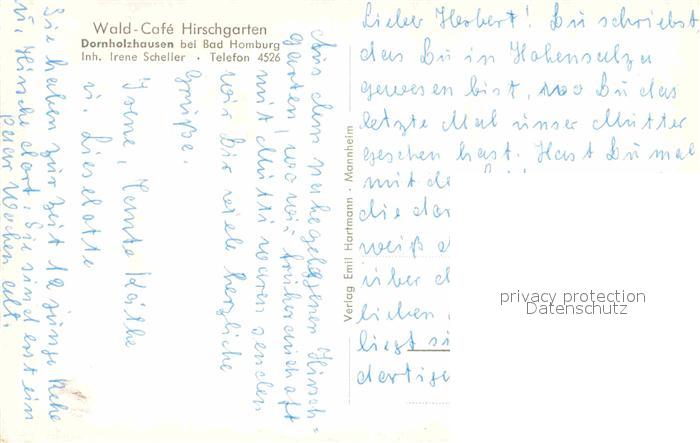 Wald-Café Hirschgarten
Dornholzhausen bei Bad Homburg
Inh. Irene Scheller · Telefon 4526
Lieber Herbert! Du schriebst,
das Du in Hohensalza
gewesen bist, wo Du das
letzte Mal unser Mutter
gesehen hast. Hast Du mal
mit de
die dar
weiß d
über d
lichen
liegt si
dertige
Aus dem nahegelegenen Hirsch-
garten, wo wir früher oft
mit Mutti waren senden
wir Dir viele herzliche
Grüße.
Irene, Tante Käthe
u. Lieselotte
Sie haben zur Zeit 12 junge Rehe
u. Hirsche dort. Sie sind erst ein
paar Wochen alt.
Verlag Emil Hartmann · Mannheim
privacy protection
Datenschutz